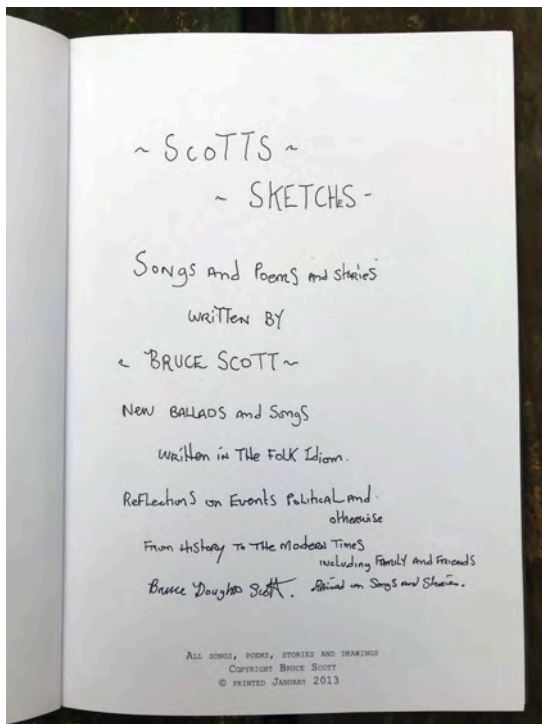 ~ SCOTTS ~
~ SKETCHES -
SONGS AND POEMS AND STORIES
WRITTEN BY
~ BRUCE SCOTT ~
NEW BALLADS AND SONGS
WRITTEN IN THE FOLK IDIOM.
REFLECTIONS ON EVENTS POLITICAL AND
OTHERWISE
FROM HISTORY TO THE MODERN TIMES
INCLUDING FAMILY AND FRIENDS
Bruce Douglas Scott. Raised on Songs and Stories.
ALL SONGS, POEMS, STORIES AND DRAWINGS
COPYRIGHT BRUCE SCOTT
© PRINTED JANUARY 2013